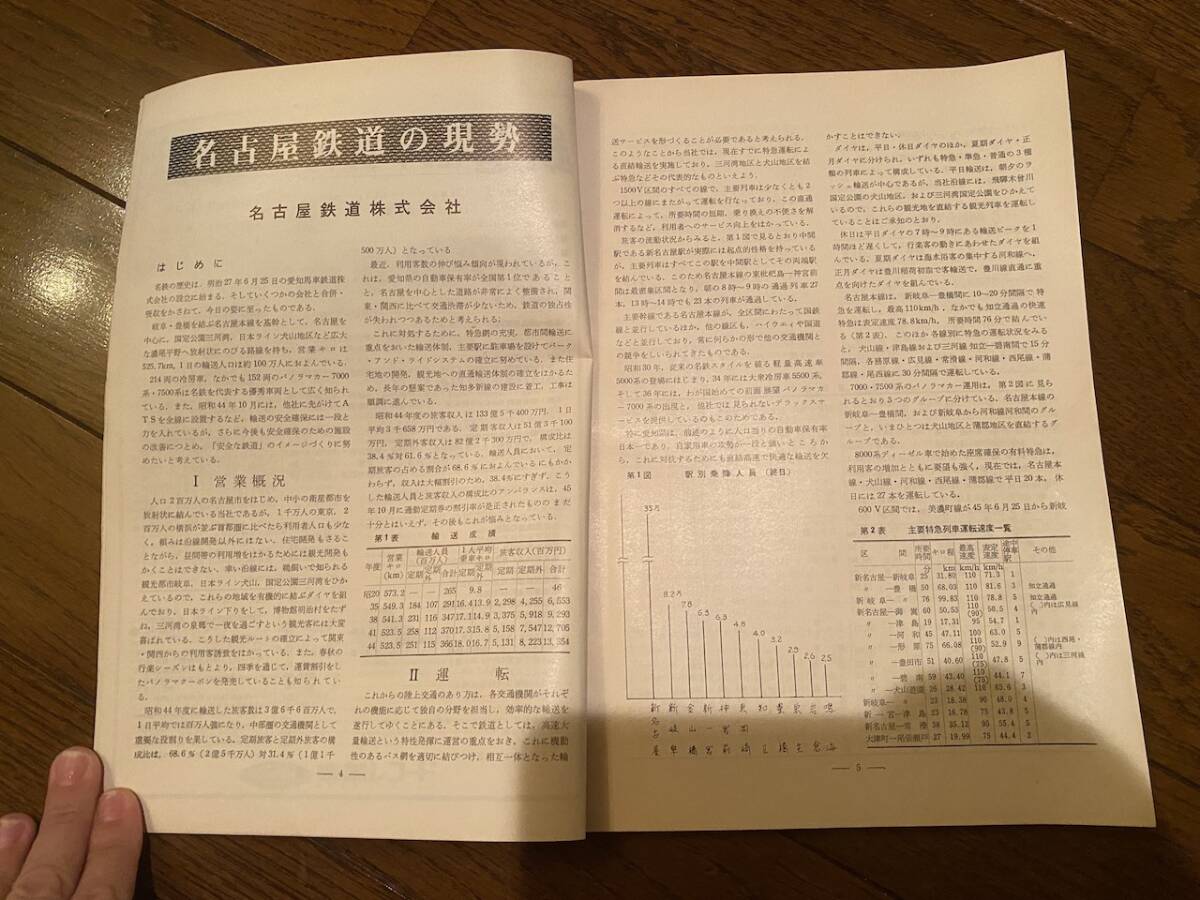 名古屋鉄道の現勢
名古屋鉄道株式会社
はじめに
名鉄の歴史は、明治27年6月25日の愛知馬車鉄道株
式会社の設立に始まる。そしていくつかの会社と合併・
受収をかさねて、今日の姿に至ったものである。
岐阜・豊橋を結ぶ名古屋本線を基幹として、名古屋を
中心に、国定公園三河湾、日本ライン犬山地区など広大
な濃尾平野へ放射状にのびる路線を持ち、営業キロは
525.7km、1日の輸送人口は約100万人におよんでいる。
214両の冷房車、なかでも152両のパノラマカー7000
系・7500系は名鉄を代表する優秀車両として広く知られ
ている。また、昭和44年10月には、他社に先がけてA
TSを全線に設置するなど、輸送の安全確保には一段と
力を入れているが、さらに今後も安全確保のための施設
の改善につとめ、「安全な鉄道」のイメージづくりに努
めたいと考えている。
Ⅰ 営業概況
人口2百万人の名古屋市をはじめ、中小の衛星都市を
放射状に結んでいる当社であるが、1千万人の東京、2
百万人の横浜が並ぶ首都圏に比べたら利用者人口も少な
く、頼みは沿線開発以外にはない。住宅開発もさるこ
とながら、昼間帯の利用増をはかるためには観光開発も
かかすことはできない。幸い沿線には、鵜飼いで知られる
観光都市岐阜、日本ライン犬山、国定公園三河湾をひか
えているので、これらの地域を有機的に結ぶダイヤを組
んでおり、日本ライン下りをして、博物館明治村をたず
ね、三河湾の泉郷で一夜を過ごすという観光客には大変
喜ばれている。こうした観光ルートの確立によって関東
・関西からの利用客誘致をはかっている。また、春秋の
行楽シーズンはもとより、四季を通じて、運賃割引をし
たパノラマクーポンを発売していることも知られてい
る。
昭和44年度に輸送した旅客数は3億6千6百万人で、
1日平均では百万人強になり、中部圏の交通機関として
重要な役割りを果している。定期旅客と定期外旅客の構
成比は、68.6%(2億5千万人)対31.4%(1億1千
500万人)となっている
最近、利用客数の伸び悩み傾向が現われているが、こ
れは、愛知県の自動車保有率が全国第1位であること
と、名古屋を中心とした道路が非常によく整備され、関
東・関西に比べて交通渋滞が少ないため、鉄道の独占性
が失われつつあるためと考えられる。
これに対処するために、特急網の充実、都市間輸送に
重点をおいた輸送体制、主要駅に駐車場を設けてパーク
・アンド・ライドシステムの確立に努めている。また住
宅地の開発、観光地への直通輸送体制の確立をはかるた
め、長年の懸案であった知多新線の建設に着工、工事は
順調に進んでいる。
昭和44年度の旅客収入は133億5千400万円、1日
平均3千658万円である。定期客収入は51億3千100
万円、定期外客収入は82億2千300万円で、構成比は
38.4%対61.6%となっている。輸送人員において、定
期旅客の占める割合が68.6%におよんでいるにもかか
わらず、収入は大幅割引のため、38.4%にすぎず、こう
した輸送人員と旅客収入の構成比のアンバランスは、45
年10月に通勤定期券の割引率が是正されたもののまだ
十分とはいえず、その後もこれが悩みとなっている。
第1表 輸送成績
年度 営業キロ(km) 輸送人員(百万人) 1人平均乗車キロ 旅客収入(百万円)
定期 定期外 合計 定期 定期外 定期 定期外 合計
昭20 573.2 — — 265 9.8 — — 46
35 549.3 184 107 291 16.4 13.9 2,298 4,255 6,553
38 541.3 231 116 347 17.1 14.9 3,375 5,918 9,293
41 523.5 258 112 370 17.3 15.8 5,158 7,547 12,705
44 523.5 251 115 366 18.0 16.7 5,131 8,223 13,354
Ⅱ 運転
これからの陸上交通のあり方は、各交通機関がそれぞ
れの機能に応じて独自の分野を担当し、効率的な輸送を
遂行してゆくことにある。そこで鉄道としては、高速大
量輸送という特性発揮に運営の重点をおき、これに機動
性のあるバス網を適切に結びつけ、相互一体となった輸
— 4 —
送サービスを形づくることが必要であると考えられる。
このようなことから当社では、現在すでに特急運転によ
る直結輸送を実施しており、三河湾地区と犬山地区を結
ぶ特急などその代表的なものといえよう。
1500V区間のすべての線で、主要列車は少なくとも2
つ以上の線にまたがって運転を行なっており、この直通
運転によって、所要時間の短縮、乗り換えの不便さを解
消するなど、利用者へのサービス向上をはかっている。
旅客の流動状況からみると、第1図で見るとおり中間
駅である新名古屋駅が実際には起点的性格を持っている
が、主要列車はすべてこの駅を中間駅としてその両端駅
を結んでいる。このため名古屋本線の東枇杷島—神宮前
間は最過密区間となり、朝の8時〜9時の通過列車27
本、13時〜14時でも23本の列車が通過している。
主要幹線である名古屋本線が、全区間にわたって国鉄
線と並行しているほか、他の線区も、ハイウェイや国道
などと並行しており、常に何らかの形で他の交通機関と
の競争をしいられてきたものである。
昭和30年、従来の鉄スタイルを破る軽量高速車
5000系の登場にはじまり、34年には大衆冷房車5500系、
そして36年には、わが国始めての前面展望パノラマカ
ー7000系の出現と、他社では見られないデラックスサ
ービスを提供しているのもこのためである。
特に愛知県は、前述のように人口当りの自動車保有率
日本一であり、自家用車の攻勢が一段と強いところか
ら、これに対抗するためにも直結高速で快適な輸送を欠
第1図 駅別乗降人員(終日)
35万
8.2万
7.8
5.3
4.8
4.0
3.2
2.9
2.6
2.5
かすことはできない。
ダイヤは、平日・休日ダイヤのほか、夏期ダイヤ・正
月ダイヤに分けられ、いずれも特急・準急・普通の3種
類の列車によって構成している。平日輸送は、朝夕のラ
ッシュ輸送が中心であるが、当社沿線には、飛騨木曽川
国定公園の犬山地区、および三河湾国定公園をひかえて
いるので、これらの観光地を直結する観光列車を運転し
ていることはご承知のとおり。
休日は平日ダイヤの7時〜9時にある輸送ピークを1
時間ほど遅くして、行楽客の動きにあわせたダイヤを組
んでいる。夏期ダイヤは海水浴客の集中する河和線へ、
正月ダイヤは豊川稲荷初詣で客輸送で、豊川線直通に重
点を向けたダイヤを組んでいる。
名古屋本線は、新岐阜—豊橋間に10〜20分間隔で特
急を運転し、最高110km/h、なかでも知立通過の快速
特急は表定速度78.8km/h、所要時間76分で結んでい
る(第2表)。このほか各線別に特急の運転状況をみる
と、犬山線・津島線および三河線知立—碧南間で15分
間隔、各務原線・広見線・常滑線・河和線・西尾線・蒲
郡線・尾西線に30分間隔で運転している。
7000・7500系のパノラマカー運用は、第3図に見ら
れるとおり3つのグループに分けている。名古屋本線の
新岐阜—豊橋間、および新岐阜から河和線河和間のグル
ープと、いまひとつは犬山地区と蒲郡地区を直結するグ
ループである。
8000系ディーゼル車で始めた座席確保の有料特急は、
利用客の増加とともに要望も強く、現在では、名古屋本
線・犬山線・河和線・西尾線・蒲郡線で平日20本、休
日には27本を運転している。
600V区間では、美濃町線が45年6月25日から新岐
第2表 主要特急列車運転速度一覧
区間 所要時間 キロ程 最高速度 表定速度 途中停車駅 その他
分 km km/h km/h
新名古屋—新岐阜 25 31.80 110 71.3 1
〃—豊橋 50 68.03 110 81.6 3 知立通過
新岐阜—〃 76 99.83 110 78.8 5 知立通過
新名古屋—御嵩 60 50.53 110(90) 50.5 4 ( )内は広見線内
〃—津島 19 17.31 95 54.7 1
〃—河和 45 47.11 100 63.0 5
〃—形原 75 66.08 110(90) 52.9 9 ( )内は西尾・蒲郡線内
〃—豊田市 51 40.60 110(75) 47.8 5 ( )内は三河線内
〃—碧南 59 43.40 110(75) 44.1 7
〃—犬山遊園 26 28.42 110 63.6 3
新岐阜—〃 23 18.38 90 48.0 4
新一宮—津島 23 16.78 75 43.8 5
新名古屋—常滑 38 35.12 95 55.4 5
大津町—尾張瀬戸 27 19.99 75 44.4 2
— 5 —